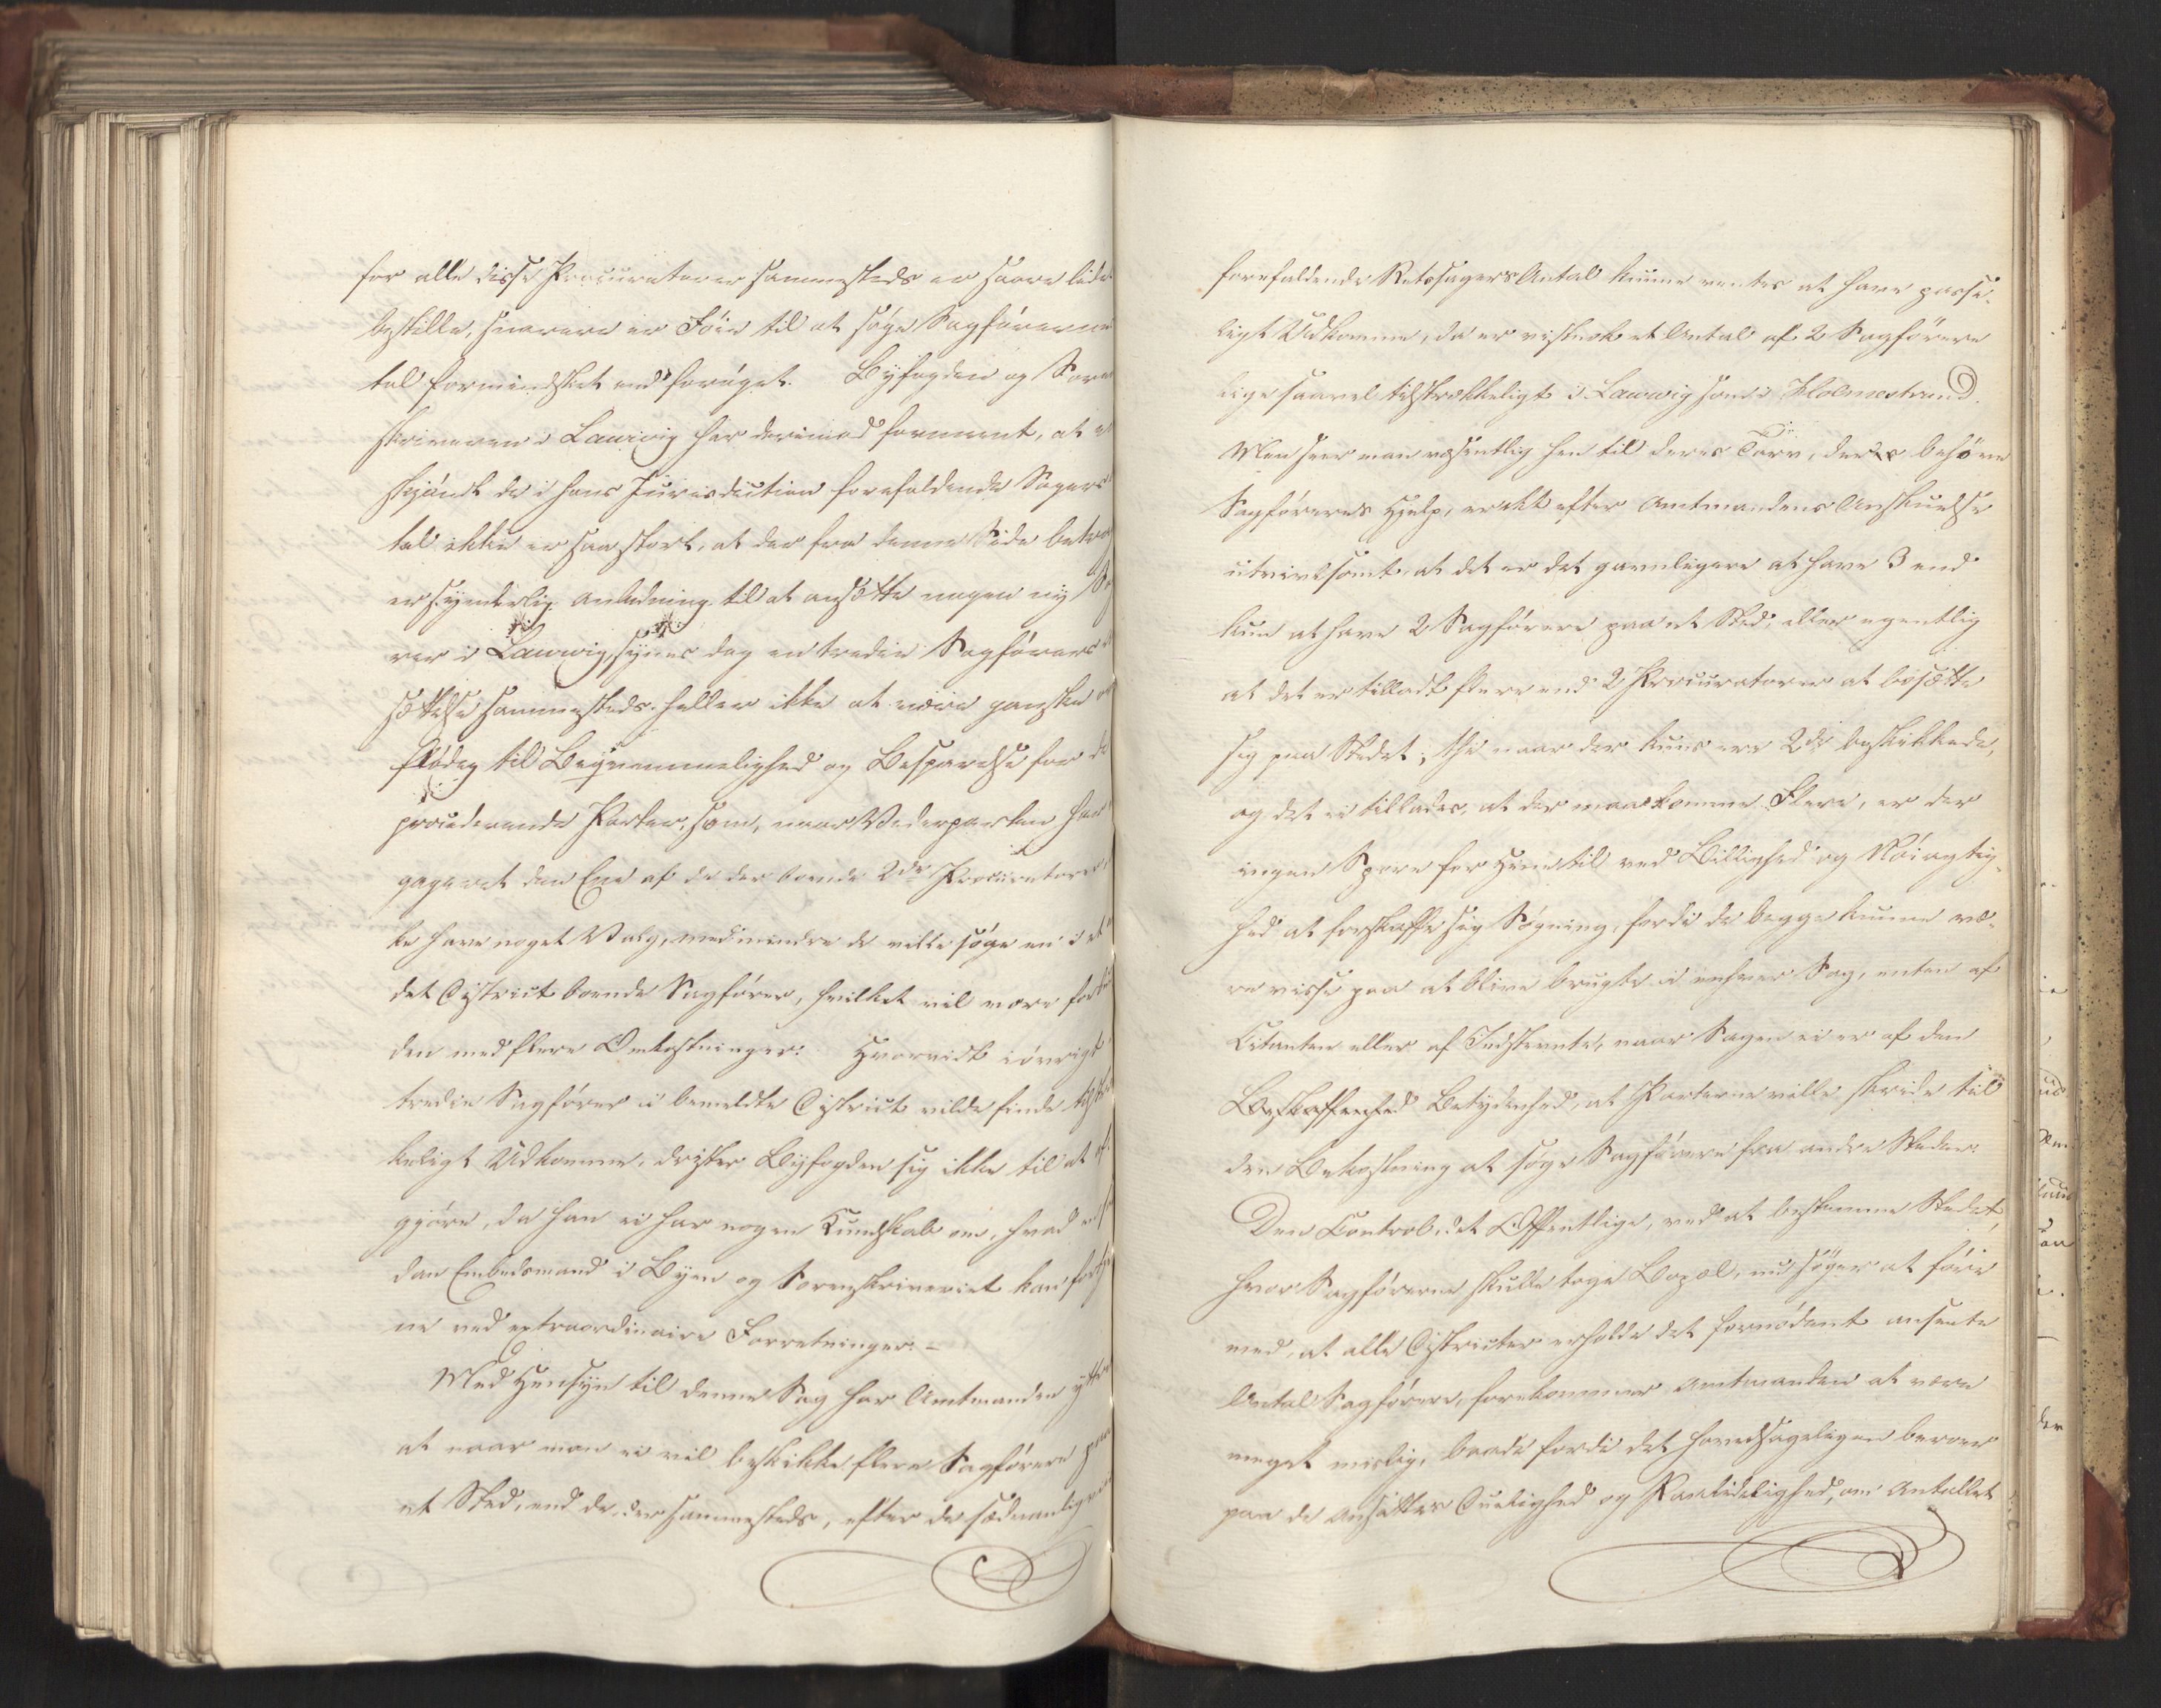 for alle disse Procuratorer sammesteds er saare lidet
bestille, snarere er Føie til at søge Sagførernes
tal formindsket end forøget. Byfogden og Soren
skriveren i Laurvig har derimod formeent, at
skjøndt de i hans Jurisdiction forefaldende Sagers
tal ikke er saa stort, at der fra denne Side betra
er synderlig Anledning til at ansætte nogen ny Sag
rer i Laurvig, synes dog en tredie Sagførers
sættelse sammesteds heller ikke at være ganske o
flødig til Beqvemmelighed og Besparelse for de
procederende Parter, som, naar Vederparten har
gageret den Ene af de der boende 2de Procuratorer
ke have noget Valg, medmindre de ville søge en i et
det District boende Sagfører, hvilket vil være forbu
den med flere Omkostninger. Hvorvidt iøvrigt
tredie Sagfører i bemeldte District vilde finde tilstræ
keligt Udkomme, drister Byfogden sig ikke til at af
gjøre, da han ei har nogen Kundskab om, hvad en saa
dan Embedsmand i Byen og Sorenskriveriet kan fortje
ne ved extraordinaire Forretninger. –
Med Hensyn til denne Sag har Amtmanden yttret
at naar man ei vil beskikke flere Sagførere paa
et Sted, end de, der sammesteds, efter de sædvanligviis
forefaldende Retssagers Antal kunne ventes at have passe-
ligt Udkomme, da er vistnok et Antal af 2 Sagførere
lige saavel tilstrækkeligt i Laurvig som i Holmestrand.
Men seer man væsentlig hen til deres Tarv, der behøve
Sagføreres Hjelp, er det efter Amtmandens Anskuelse
utvivlsomt, at det er det gavnligere at have 3 end
kun at have 2 Sagførere paa et Sted, eller egentlig
at det er tilladt flere end 2 Procuratorer at bosætte
sig paa Stedet; thi naar der kuns ere 2de beskikkede,
og det ei tillades, at der maa komme Flere, er der
ingen Spore for Hine til ved Billighed og Nøiagtig-
hed at forskaffe sig Søgning, fordi de begge kunne væ-
re visse paa at blive brugte i enhver Sag, enten af
Citanten eller af Indstevnte, naar Sagen ei er af den
Beskaffenhed Betydenhed, at Parterne ville skride til
den Bekostning at søge Sagførere fra andre Steder.
Den Control, det Offentlige, ved at bestemme Stedet,
hvor Sagførerne skulle tage Bopæl, nu søger at føre
med, at alle Districter erholde det fornødent ansete
Antal Sagførere, forekommer Amtmanden at være
meget mislig, baade fordi det hovedsageligen beroer
paa de Ansattes Duelighed og Paalidelighed, om Antallet